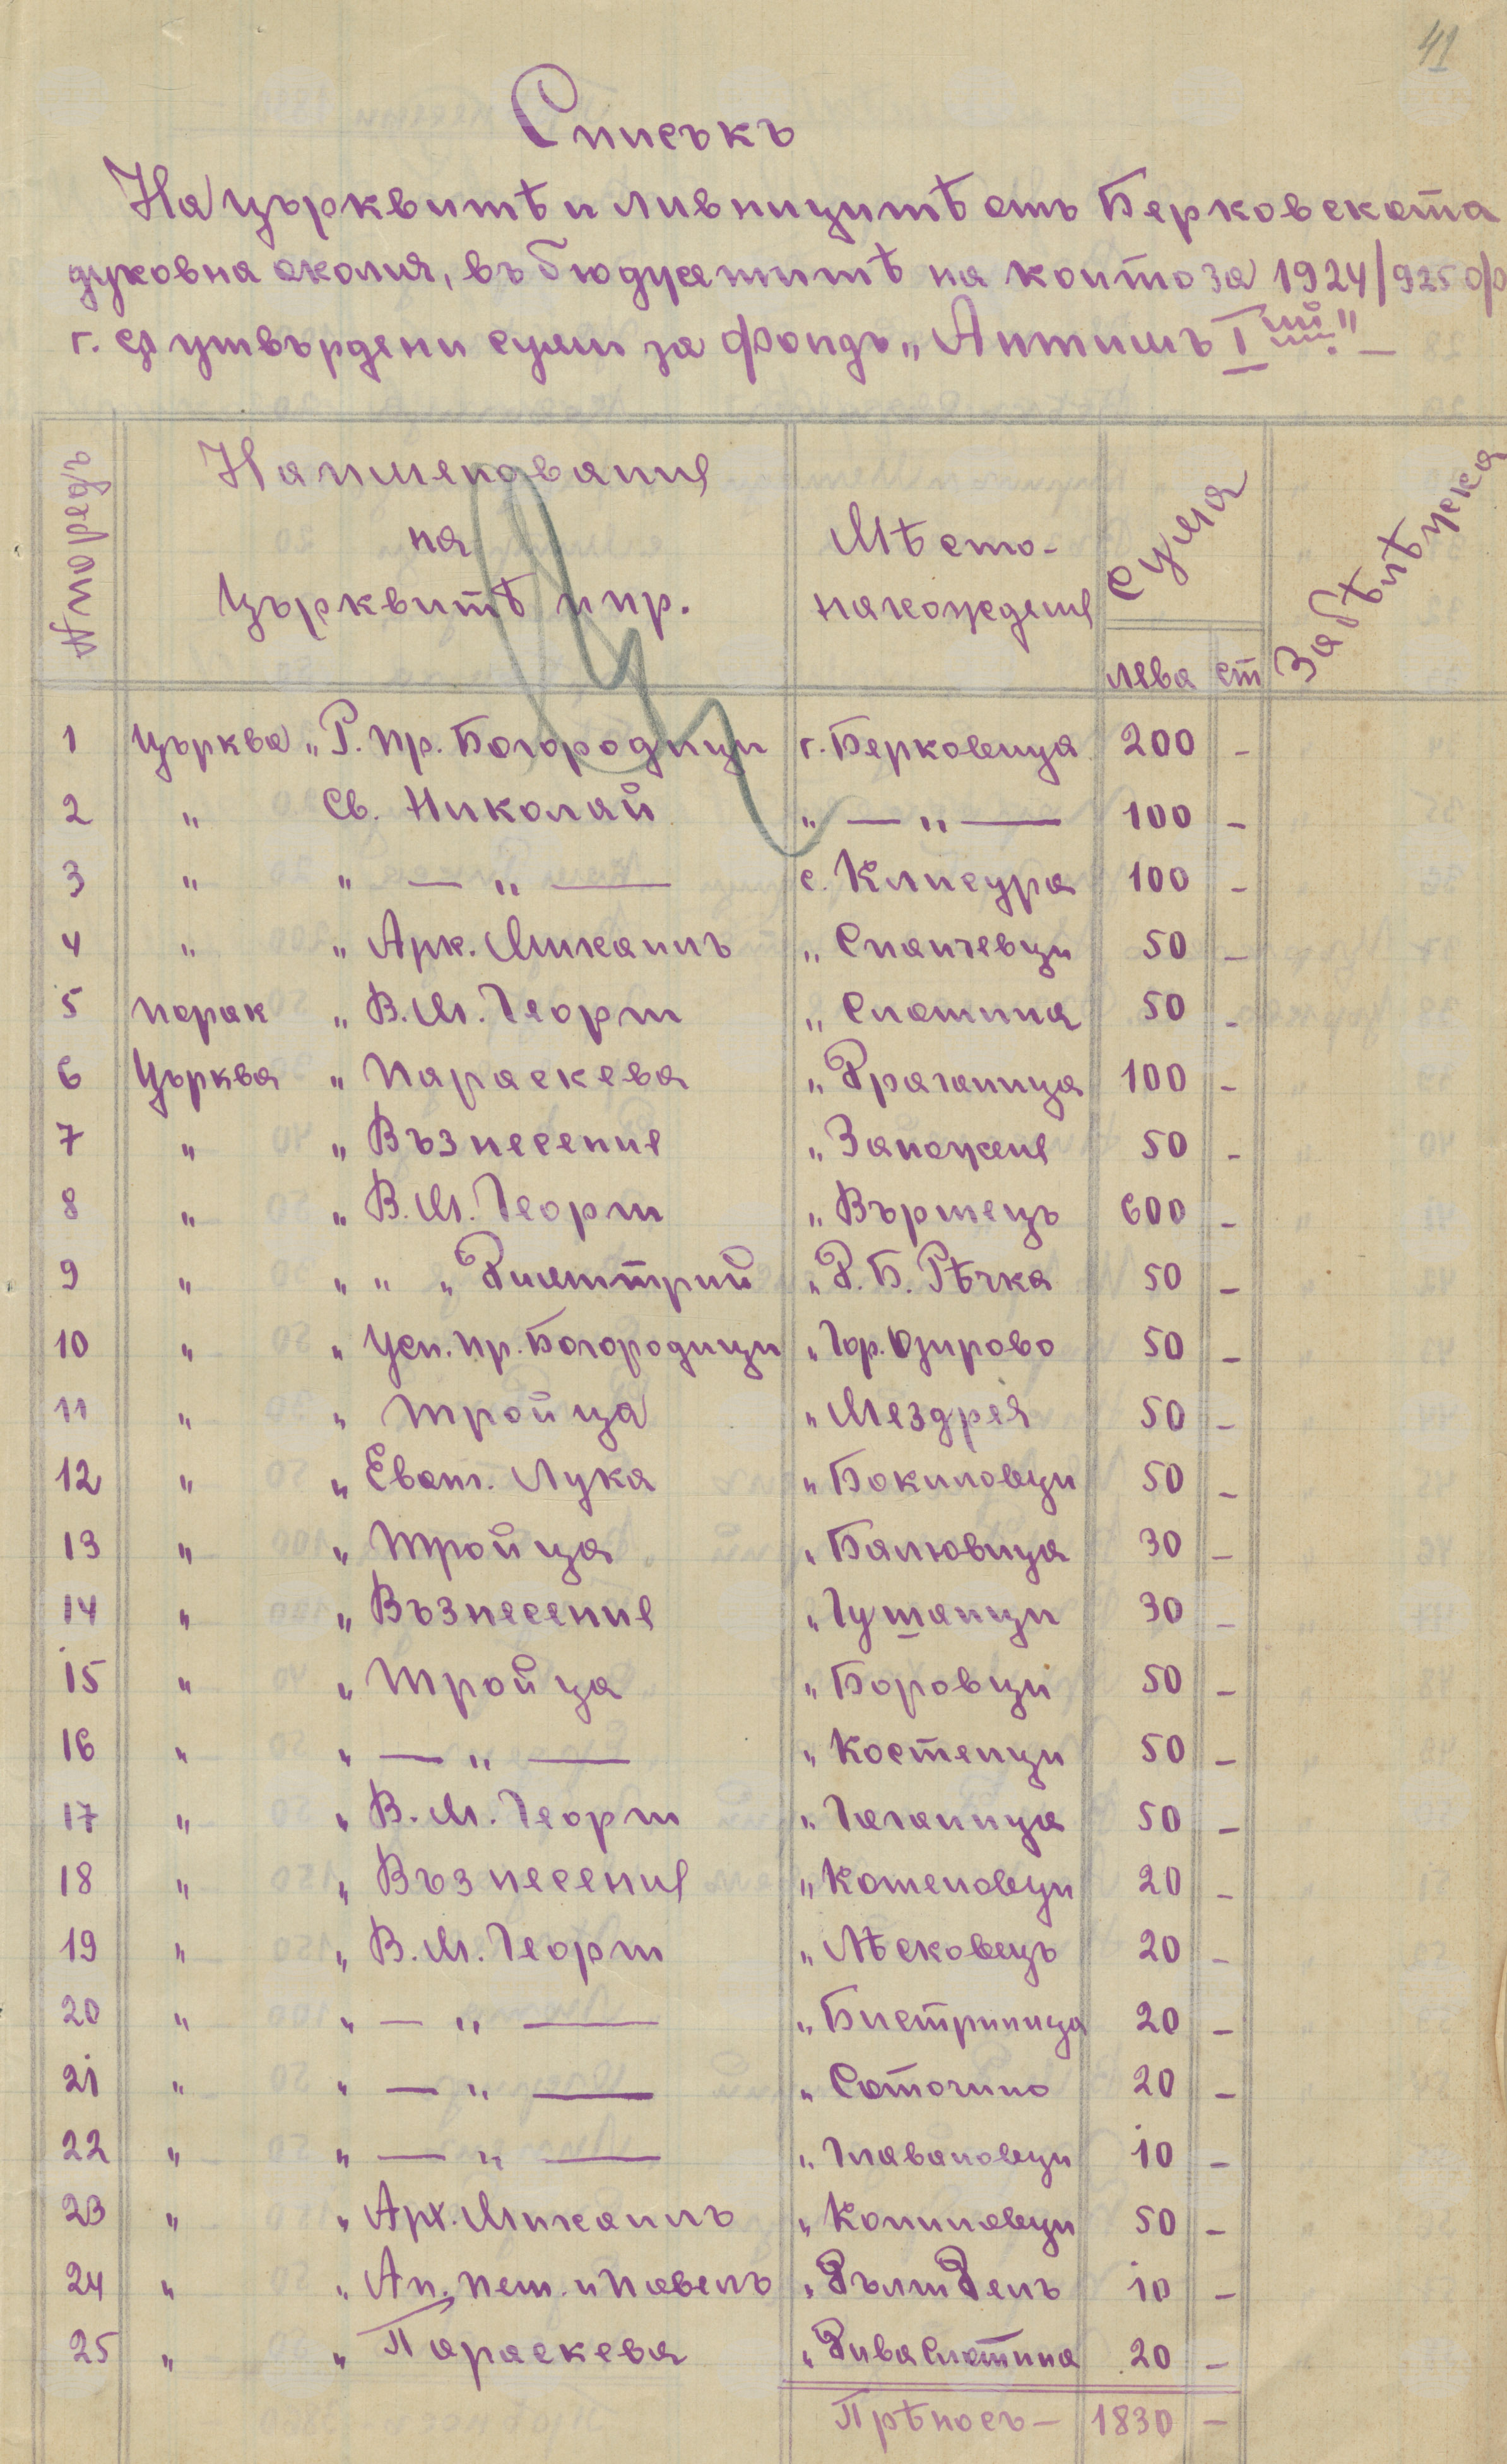 41
Списъкъ
На църквитѣ и ливницитѣ отъ Берковската
духовна околия, въ бюджетитѣ на които за 1924/925 ф
г. сѫ утвърдени суми за фондъ „Антимъ I ий"—
№ по редъ
Наименование
на
Църквитѣ и пр.
Мѣсто-
нахождение
Сума
лева ст
Забѣлѣжка
1 Църква „Р. Пр. Богородици г. Берковица 200 -
2 „ Св. Николай „ — „ — 100 -
3 „ „ — „ — с. Клисура 100 -
4 „ „ Арх. Михаилъ „ Спанчевци 50 -
5 Парак „ В. М. Георги „ Слатина 50 -
6 Църква „ Параскева „ Драганица 100 -
7 „ „ Възнесение „ Заножене 50 -
8 „ „ В. М. Георги „ Вършецъ 600 -
9 „ „ „ „ Димитрий „ Д. Б. Рѣчка 50 -
10 „ „ Усп. Пр. Богородици „ Гор. Озирово 50 -
11 „ „ Тройца „ Мездрея 50 -
12 „ „ Еванг. Лука „ Бокиловци 50 -
13 „ „ Тройца „ Балювица 30 -
14 „ „ Възнесение „ Гушанци 30 -
15 „ „ Тройца „ Боровци 50 -
16 „ „ — „ — „ Костенци 50 -
17 „ „ В. М. Георги „ Гаганица 50 -
18 „ „ Възнесение „ Котеновци 20 -
19 „ „ В. М. Георги „ Лѣсковецъ 20 -
20 „ „ — „ — „ Бистрилица 20 -
21 „ „ — „ — „ Соточино 20 -
22 „ „ — „ — „ Главановци 10 -
23 „ „ Арх. Михаилъ „ Копиловци 50 -
24 „ „ Ап. Пет. и Павелъ „ Дълги Делъ 10 -
25 „ „ Параскева „ Дива Слатина 20 -
Прѣносъ — 1830 —